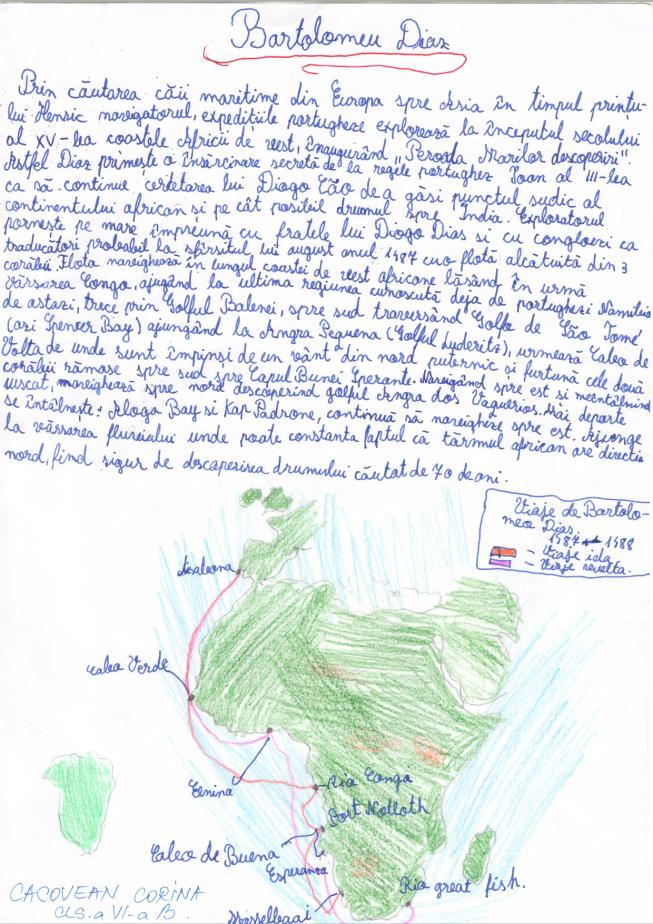 Bartolomeu Diaz
Prin căutarea căii maritime din Europa spre Asia în timpul prințu-
lui Henric navigatorul, expedițiile portugheze explorează la începutul secolului
al XV-lea coastele Africii de vest, inaugurând „Peroada Marilor descoperiri"
Astfel Diaz primește o însărcinare secretă de la regele portughez Ioan al III-lea
ca să continuie certetarea lui Diogo Cão de a găsi punctul sudic al
continentului african și pe cât posibil drumul spre India. Exploratorul
pornește pe mare împreună cu fratele lui Diogo Dias si cu congloezi ca
traducători probabil la sfîrsitul lui august anul 1487 cu o flotă alcătuită din 3
corăbii. Flota navighează în lungul coastei de vest africane lăsând în urmă
vărsarea Congo, ajugând la ultima regiunea cunoscută deja de portughezi Namibia
de astazi, trece prin Golful Balenei, spre sud traversând Golfo de São Tomé
(azi Spencer Bay) ajungând la Angra Pequena (Golful Lyderitz), urmează Caleo de
Volta de unde sunt împinși de un vânt din nord puternic și furtună cele două
corăbii rămase spre sud spre Capul Bunei Sperante. Navigând spre est si neentâlnind
uscat, navighează spre nord descoperind golful Angra dos Vaqueros. Mai departe
se întâlnește: Aloga Bay si Kap Padrone, continuă să navigheze spre est. Ajunge
la vărsarea fluviului unde poate constanta faptul că tărmul african are directia
nord, fiind sigur de descoperirea drumului căutat de 70 de ani.
Viaje de Bartolo-
meo Dias.
1487 1488
- Viaje ida
- Viaje vuelta.
Caleo Verde
Elmina
Ria Congo
Port Nolloth
Caleo de Buena
Esperanza
Ria great fish.
Mosselbaai
CACOVEAN CORINA
CLS. a VI-a B.